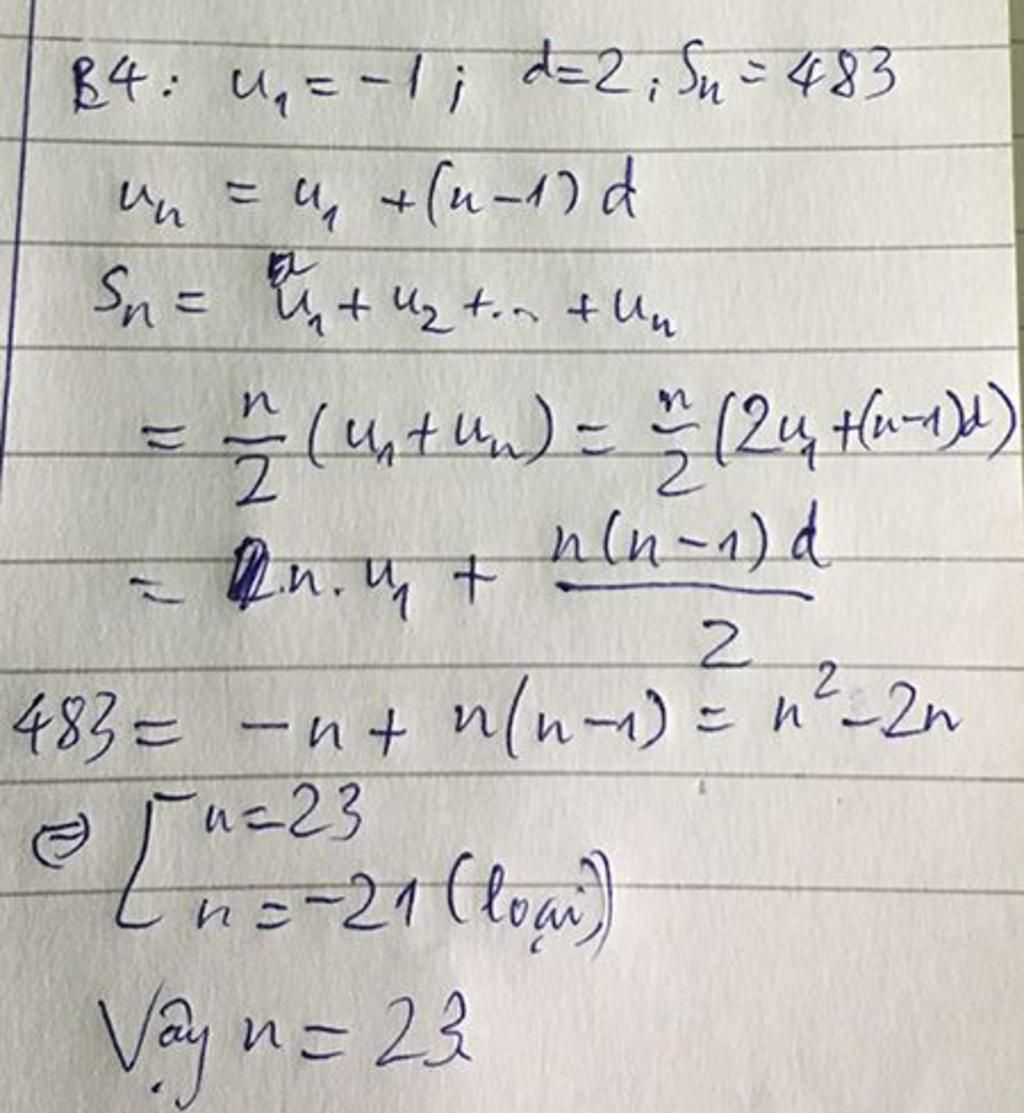 B4: u₁ = -1 ; d=2 ; Sₙ = 483
uₙ = u₁ + (n-1) d
Sₙ = u₁ + u₂ + ... + uₙ
= n/2 (u₁ + uₙ) = n/2 (2u₁ + (n-1)d)
= n. u₁ + n(n-1) d / 2
483 = -n + n(n-1) = n² - 2n
⇔ [ n = 23
n = -21 (loại)
Vậy n = 23